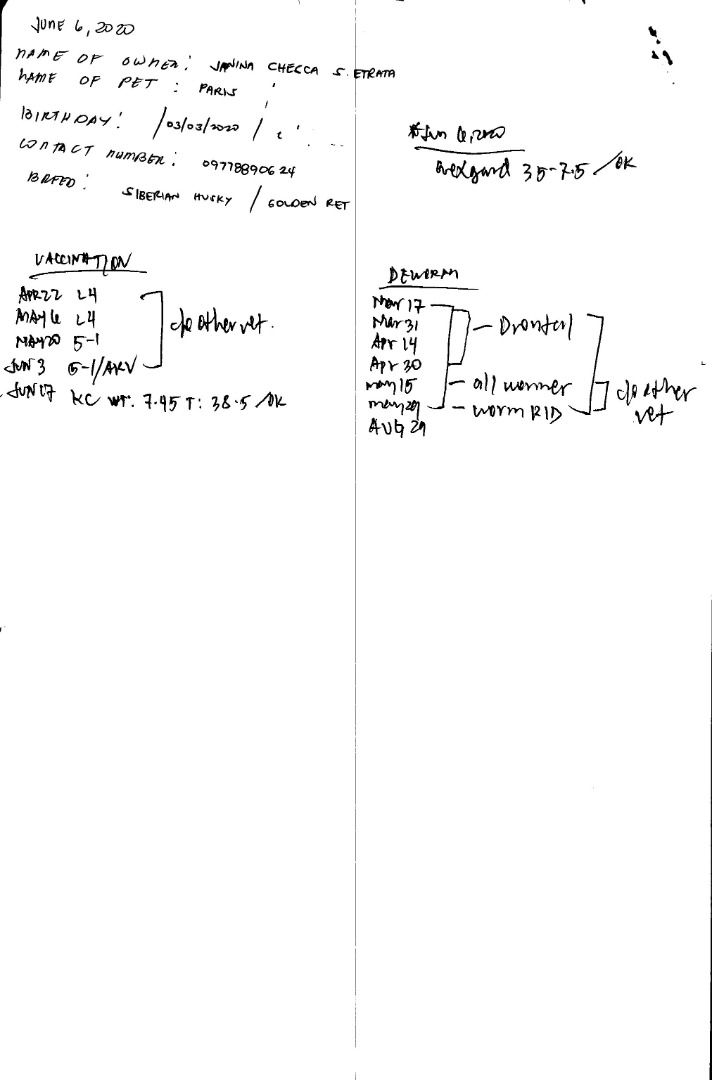 JUNE 6, 2020
NAME OF OWNER: JANINA CHECCA S. ETRATA
NAME OF PET : PARIS
BIRTHDAY: /03/03/2020 /
CONTACT NUMBER: 09778890624
BREED: SIBERIAN HUSKY / GOLDEN RET
VACCINATION
APR 22 L4
MAY 6 L4
MAY 20 5-1
JUN 3 5-1/ARV
c/o other vet.
JUN 17 KC WT. 7.45 T: 38.5 /OK
*Jun 6, 2020
nexgard 3.5-7.5 /OK
DEWORM
Mar 17
Mar 31
Apr 14
Apr 30
- Drontal
May 15 - all wormer
May 29 - worm RID
c/o other vet
AUG 29